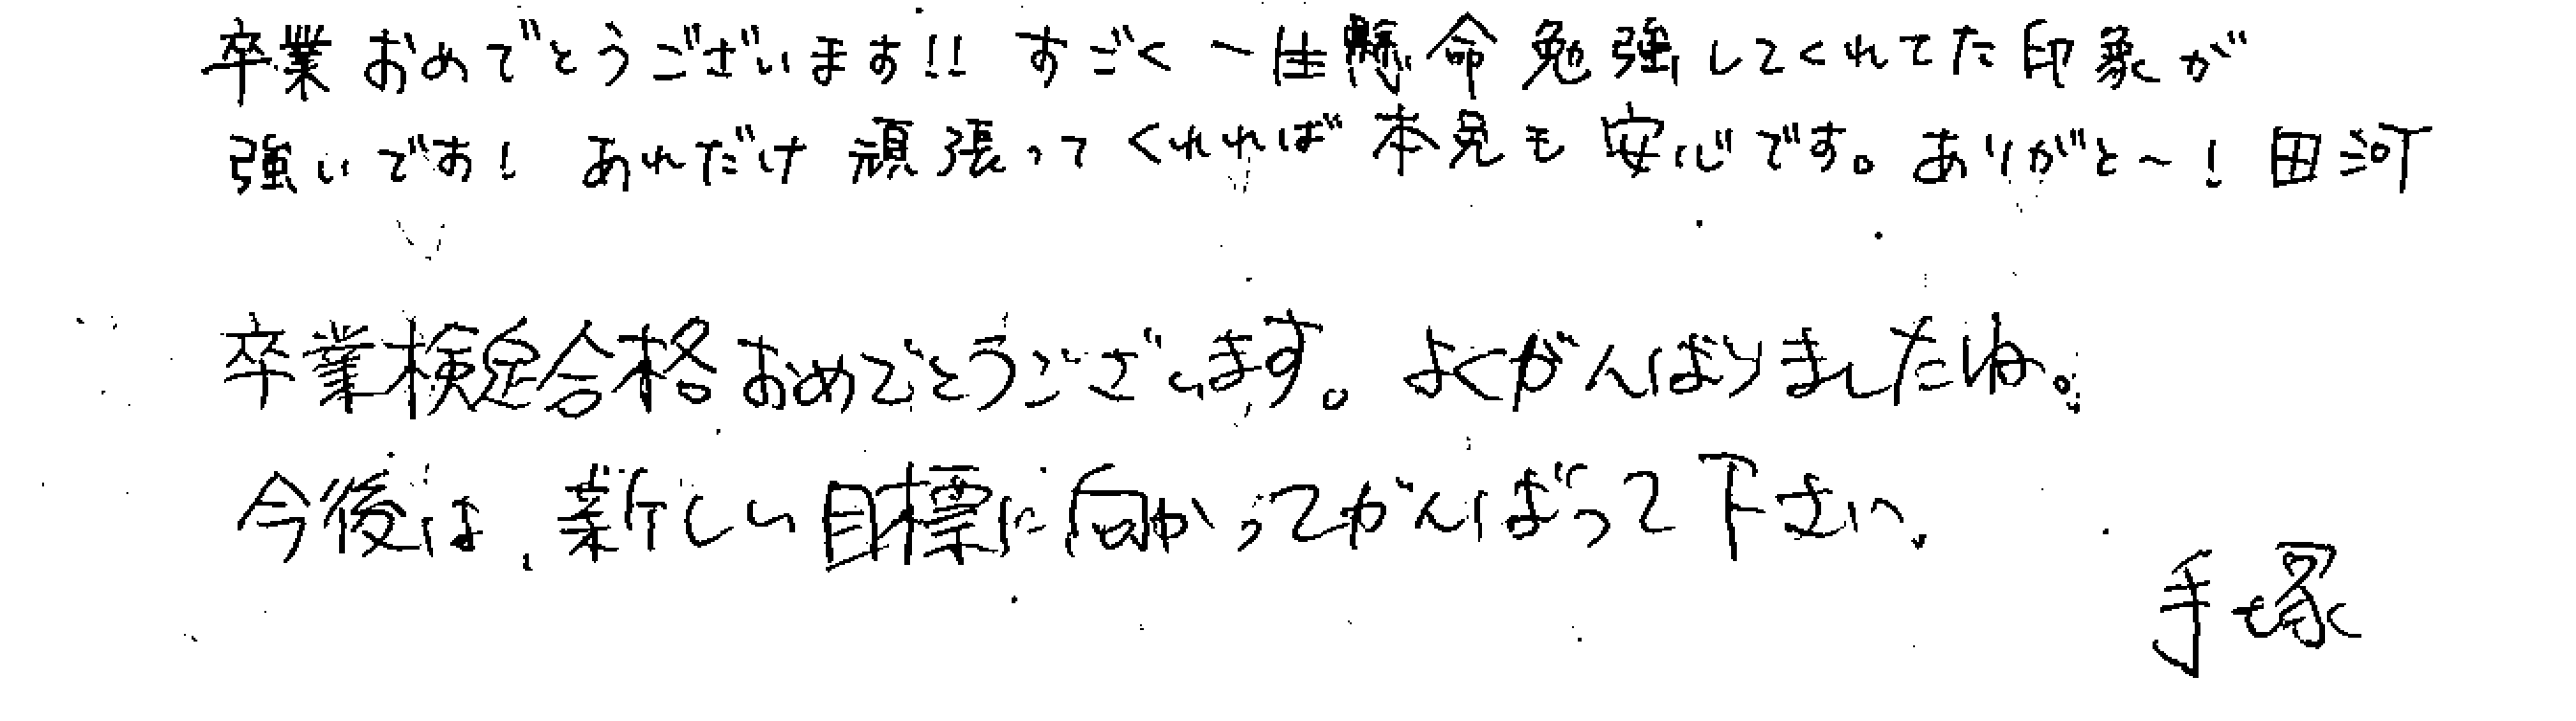 卒業おめでとうございます!! すごく一生懸命勉強してくれてた印象が
強いです! あれだけ頑張ってくれれば本免も安心です。ありがと～! 田河
卒業検定合格おめでとうございます。よくがんばりましたね。
今後は、新しい目標に向かってがんばって下さい。
手塚